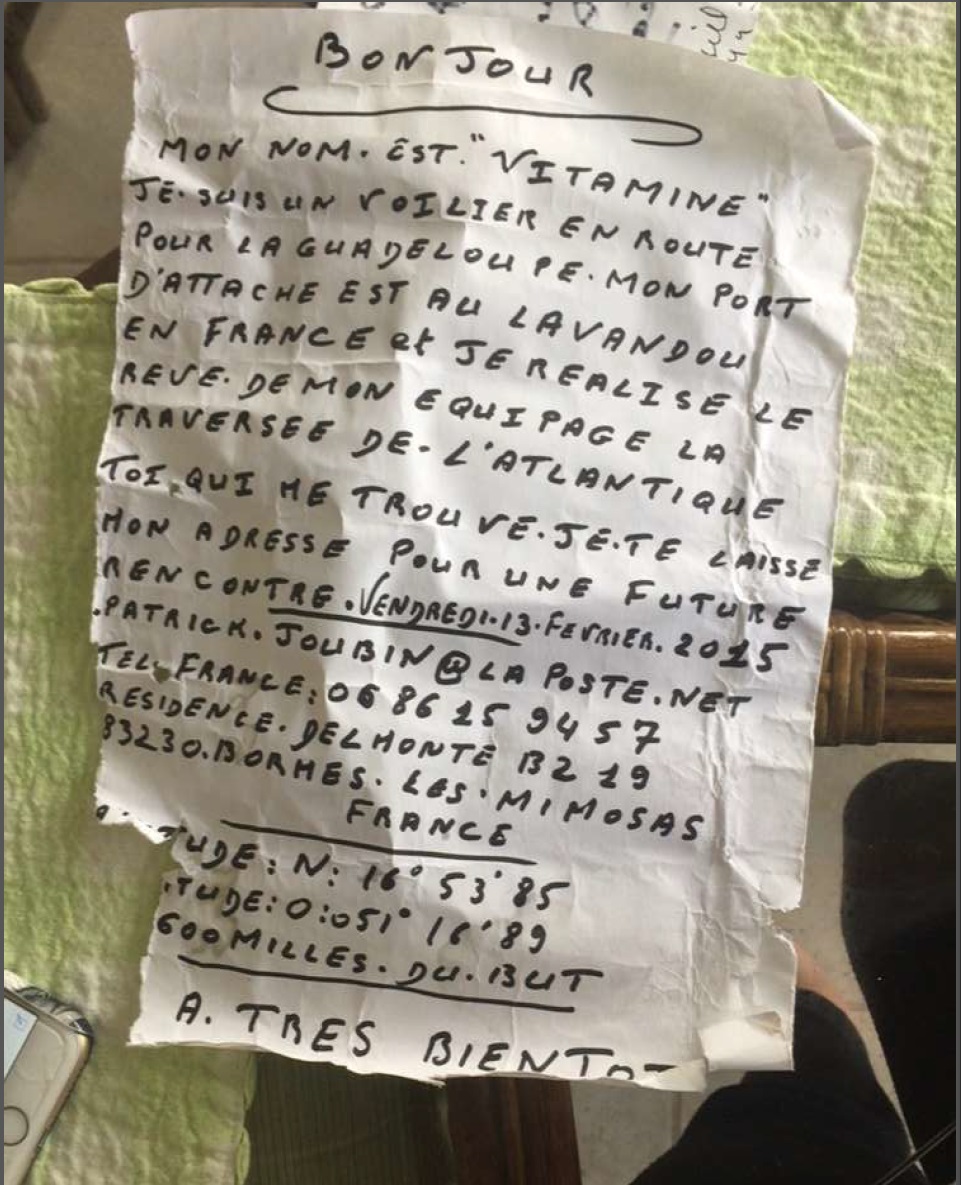 BONJOUR
MON NOM. EST. "VITAMINE"
JE. SUIS UN VOILIER EN ROUTE
POUR LA GUADELOUPE. MON PORT
D'ATTACHE EST AU LAVANDOU
EN FRANCE et JE REALISE LE
REVE. DE MON EQUIPAGE LA
TRAVERSEE DE. L'ATLANTIQUE
TOI QUI ME TROUVE. JE. TE LAISSE
MON ADRESSE POUR UNE FUTURE
RENCONTRE. VENDREDI. 13. FEVRIER. 2015
.PATRICK. JOUBIN@LA POSTE.NET
TEL. FRANCE: 06 86 15 94 57
RESIDENCE. DELMONTE B2 19
83230. BORMES. LES. MIMOSAS
FRANCE
TUDE: N: 16° 53' 85
ITUDE: O: 051° 16' 89
600 MILLES. DU. BUT
A. TRES BIENTOT